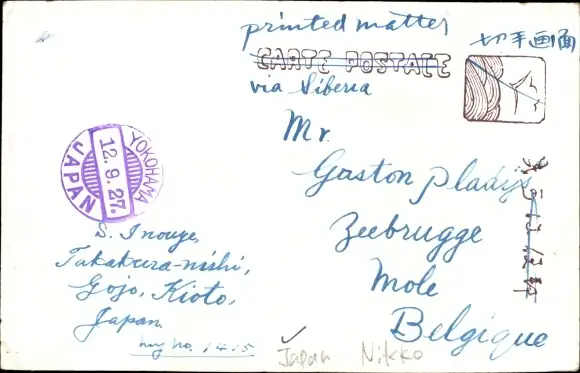 printed matter
切手画面
CARTE POSTALE
via Siberia
Mr.
Gaston Pladijs
Zeebrugge
Mole
Belgique
YOKOHAMA
12.9.27.
JAPAN
S. Inouye,
Takakura-nishi,
Gojo, Kioto,
Japan.
my no. 1415
Japan Nikko